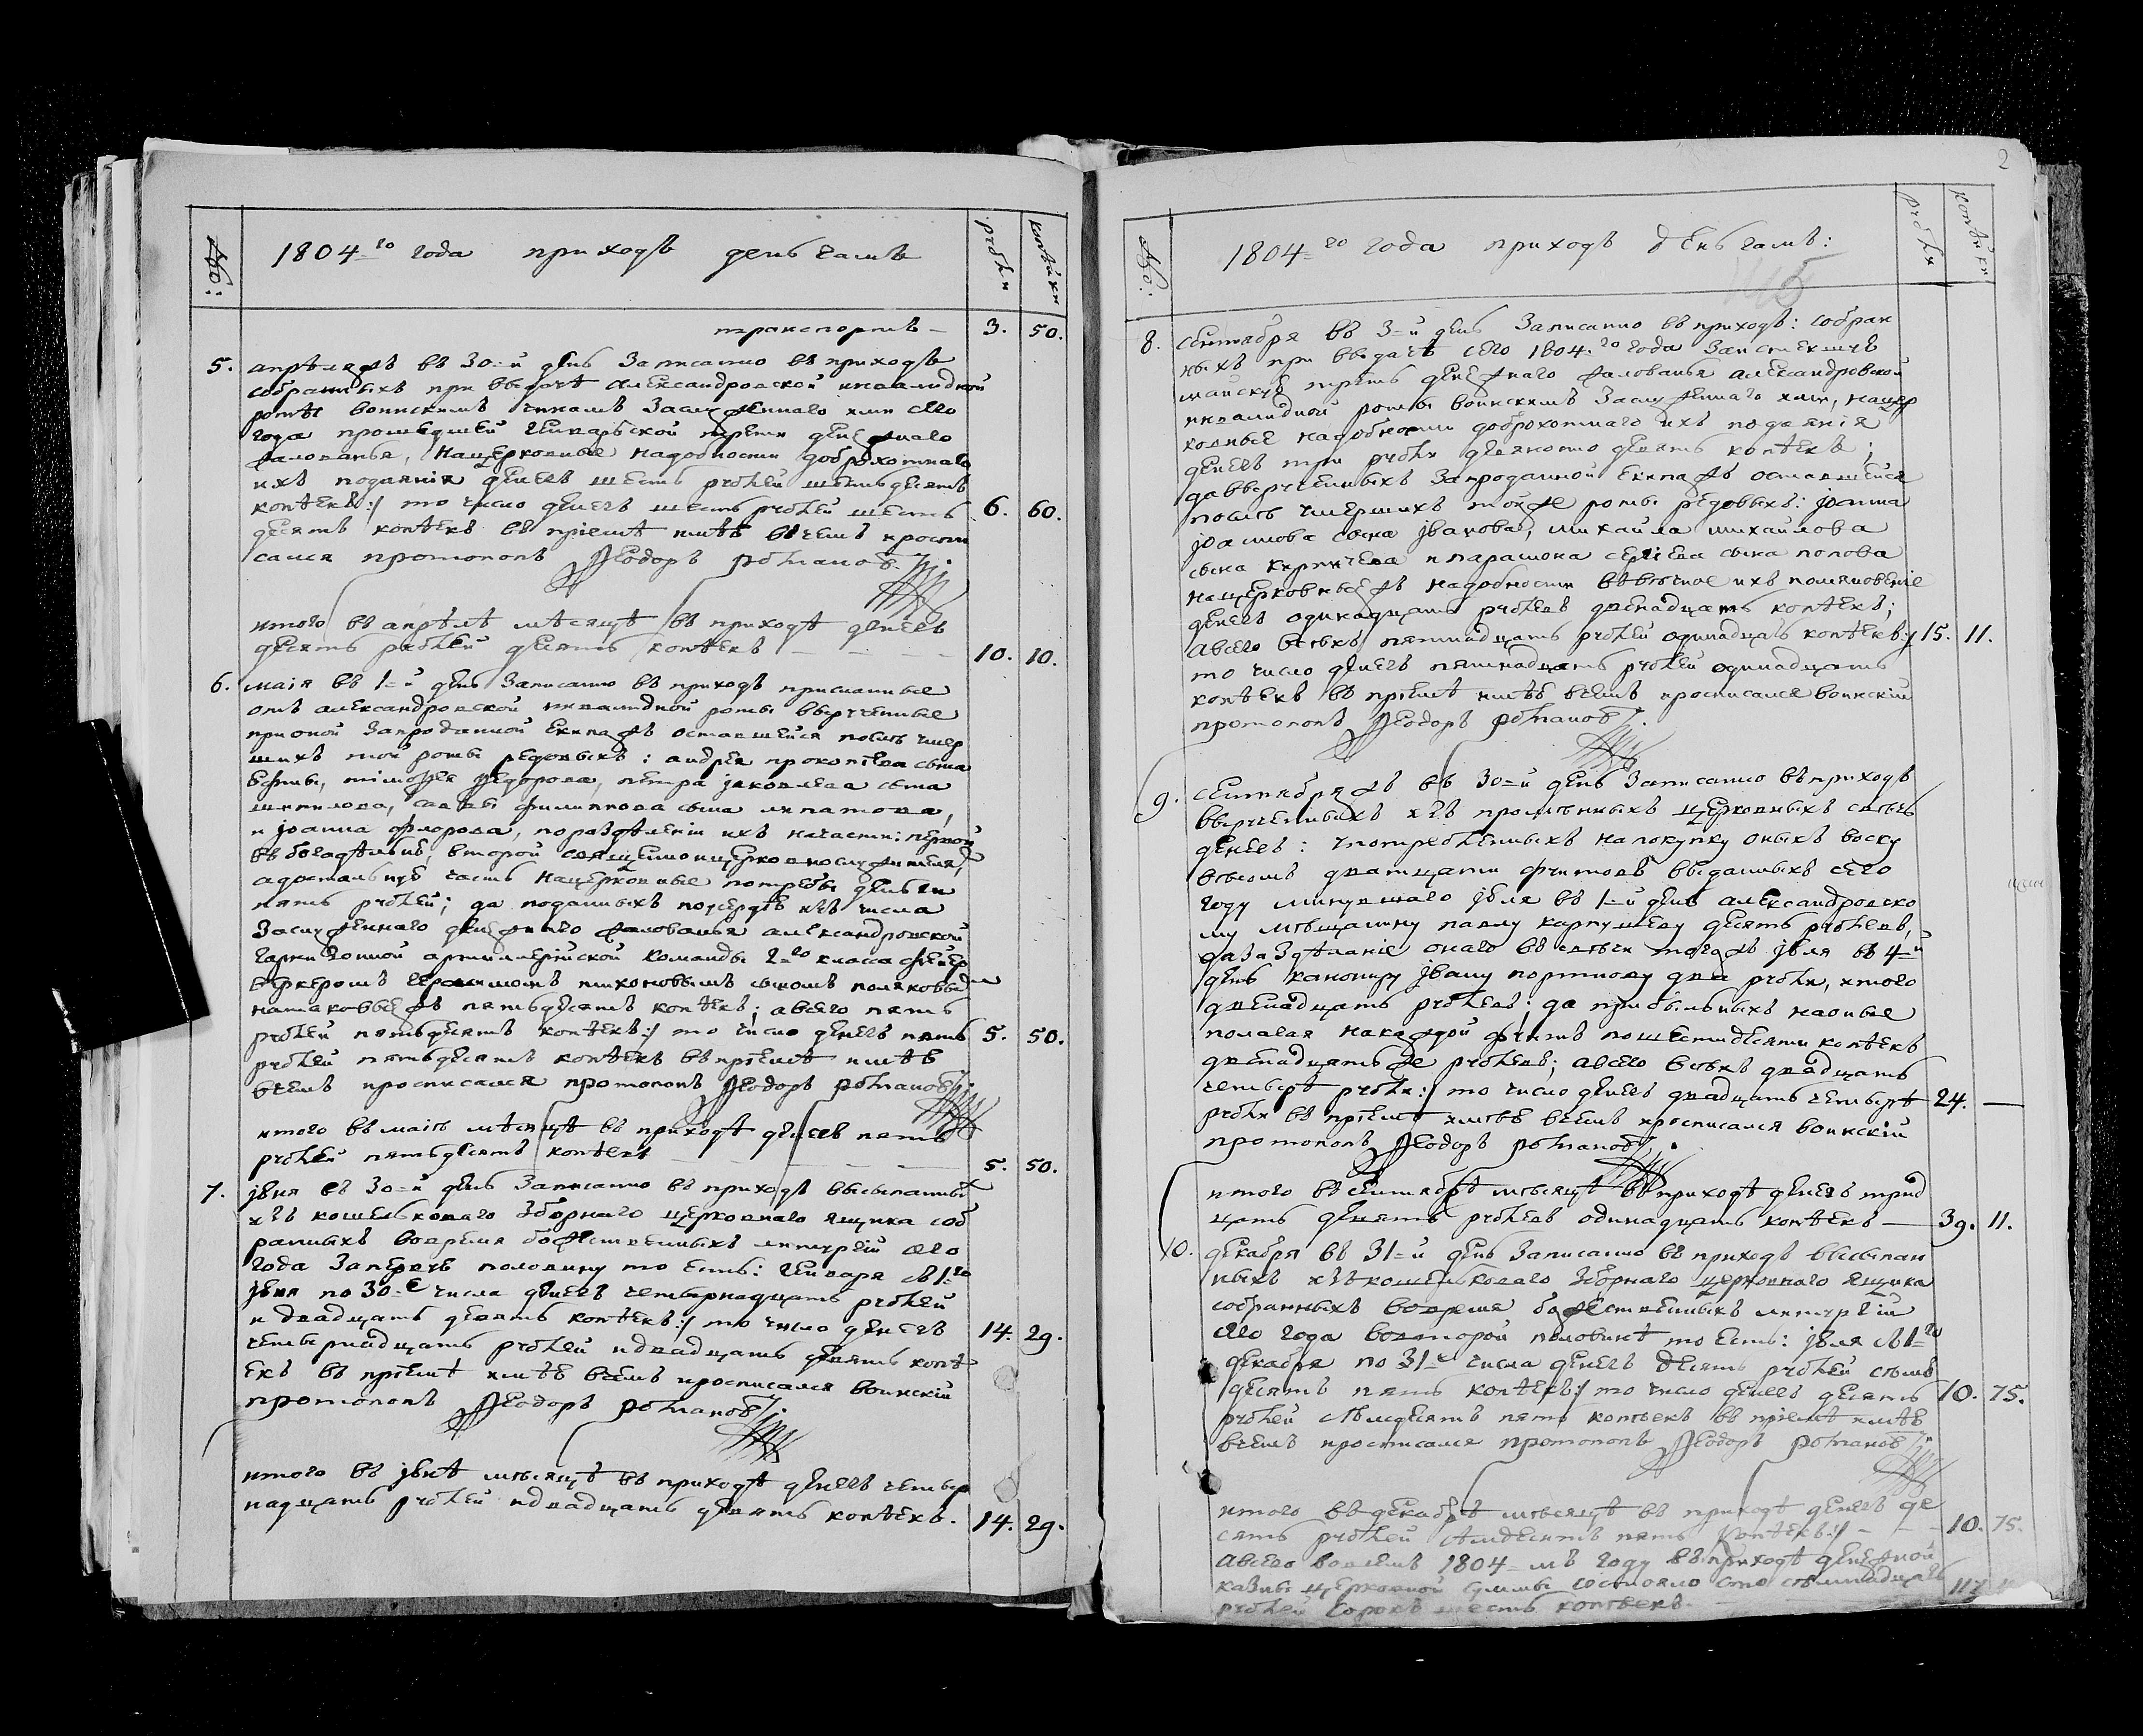 №:
1804-го года приходъ деньгамъ
рубли
копѣйки
транспортъ – 3. 50.
5. апрѣля жъ въ 30-й день записано въ приходъ
собранныхъ при выдачѣ александровской инвалидной
роты воинскимъ чинамъ заслуженнаго ими сего
года прошедшей генварьской трети денежнаго
жалованья, нацерковные надобности доброхотнаго
ихъ подаянія денегъ шесть рублей шездесятъ
копѣекъ:/ то число денегъ шесть рублей шесть 6. 60.
десятъ копѣекъ въ пріемѣ имѣъ въ чемъ и роспи
сался протопопъ Ѳеодоръ романов
итого въ апрѣлѣ мѣсяцѣ въ приходѣ денегъ
десять рублей десять копѣекъ 10. 10.
6. маія въ 1-й день записано въ приходъ присланные
отъ александровской инвалидной роты врученные
при оной запроданной екипажъ оставшейся послѣ умер
шихъ той роты редовыхъ: андрея прокопіева сына
тимоѳея ѳедорова, петра іаковлева сына
шипилова, саввы филиппова сына липатова,
и іоанна фролова, по раздѣленіи ихъ на части: первой
въ богадѣльнѣ, второй священно и церковнослужителямъ
а достальную часть нацерковные потребы деньги
пять рублей; да поданныхъ по усердію изъ числа
заслуженнаго денежнаго жалованья александровской
гарнизонной артиллерійской команды 2-го класса фейер
веркеромъ тихоновымъ сыномъ поляковымъ
на таковые жъ пятьдесятъ копѣекъ; а всего пять
рублей пятьдесятъ копѣекъ:/ то число денегъ пять 5. 50.
рублей пятьдесятъ копѣекъ въ пріемѣ имѣъ
въ чемъ и росписался протопопъ Ѳеодоръ романовъ
итого въ маіѣ мѣсяцѣ въ приходѣ денегъ пять
рублей пятьдесятъ копѣекъ 5. 50.
7. іюня въ 30-й день записано въ приходъ высыпанныхъ
изъ кошельковаго зборнаго церковнаго ящика соб
ранныхъ во время божественныхъ литургій сего
года за первую половину то есть: генваря съ 1-го
іюня по 30-е числа денегъ четырнадцать рублей
и двадцать девять копѣекъ:/ то число денегъ 14. 29.
четырнадцать рублей и двадцать девять копѣ
екъ въ пріемѣ имѣъ въ чемъ и росписался воинскій
протопопъ Ѳеодоръ романовъ
итого въ іюнѣ мѣсяцѣ въ приходѣ денегъ четыр
надцать рублей и двадцать девять копѣекъ. 14. 29.
2
№:
1804-го года приходъ деньгамъ:
рубли
копѣйки
8. сентября въ 3-й день записано въ приходъ: собран
ныхъ при выдачѣ сего 1804-го года за истекшую
майскую треть денежнаго жалованья александровской
инвалидной роты воинскимъ заслуженнаго ими, нацер
ковные надобности доброхотнаго ихъ подаянія
денегъ три рубли девяносто девять копѣекъ;
да врученныхъ запроданной екипажъ оставшейся
послѣ умершихъ той же роты редовыхъ: іоанна
іоаннова сына іванова, михаила михаилова
сына кирпичева и парамона сергіева сына попова
нацерковные жъ надобности въ вѣчное ихъ поминовеніе
денегъ одинадцать рублевъ двенадцать копѣекъ;
а всего всѣхъ пятнадцать рублей одинадцать копѣекъ:/ 15. 11.
то число денегъ пятнадцать рублей одинадцать
копѣекъ въ пріемѣ имѣъ въ чемъ и росписался воинскій
протопопъ Ѳеодоръ романовъ
9. сентября жъ въ 30-й день записано въ приходъ
врученныхъ изъ промѣнныхъ церковныхъ свѣчъ
денегъ: употребленныхъ на покупку оныхъ воску
вѣсомъ дватцати фунтовъ выданныхъ сего
году минувшаго іюля въ 1-й день александровско
му мѣщанину павлу карпушеву десять рублевъ,
да за здѣланіе онаго въ свѣчи того жъ іюля въ 4-й
день канониру івану портнову два рубли, итого
двенадцать рублевъ; да прибыльныхъ на оные
полагая на каждой фунтъ по шестидесяти копѣекъ
двенадцать же рублевъ; а всего всѣхъ двадцать
четыре рубли:/ то число денегъ двадцать четыре 24. —
рубли въ пріемѣ имѣъ въ чемъ и росписался воинскій
протопопъ Ѳеодоръ романовъ
итого въ сентябрѣ мѣсяцѣ въ приходѣ денегъ трид
цать девять рублевъ одинадцать копѣекъ — 39. 11.
10. декабря въ 31-й день записано въ приходъ высыпан
ныхъ изъ кошельковаго зборнаго церковнаго ящика
собранныхъ во время божественныхъ литургій
сего года во второй половинѣ то есть: іюля съ 1-го
декабря по 31-е числа денегъ десять рублей семь
десятъ пять копѣекъ:/ то число денегъ десять 10. 75.
рублей семдесятъ пять копѣекъ въ пріемѣ имѣъ
въ чемъ и росписался протопопъ Ѳеодоръ романовъ
итого въ декабрѣ мѣсяцѣ въ приходѣ денегъ де
сять рублей семдесятъ пять копѣекъ:/ 10. 75.
а всего во всемъ 1804-мъ году въ приходѣ денежной
казны церковной суммы состояло сто семнадцать 117
рублей сорокъ шесть копѣекъ